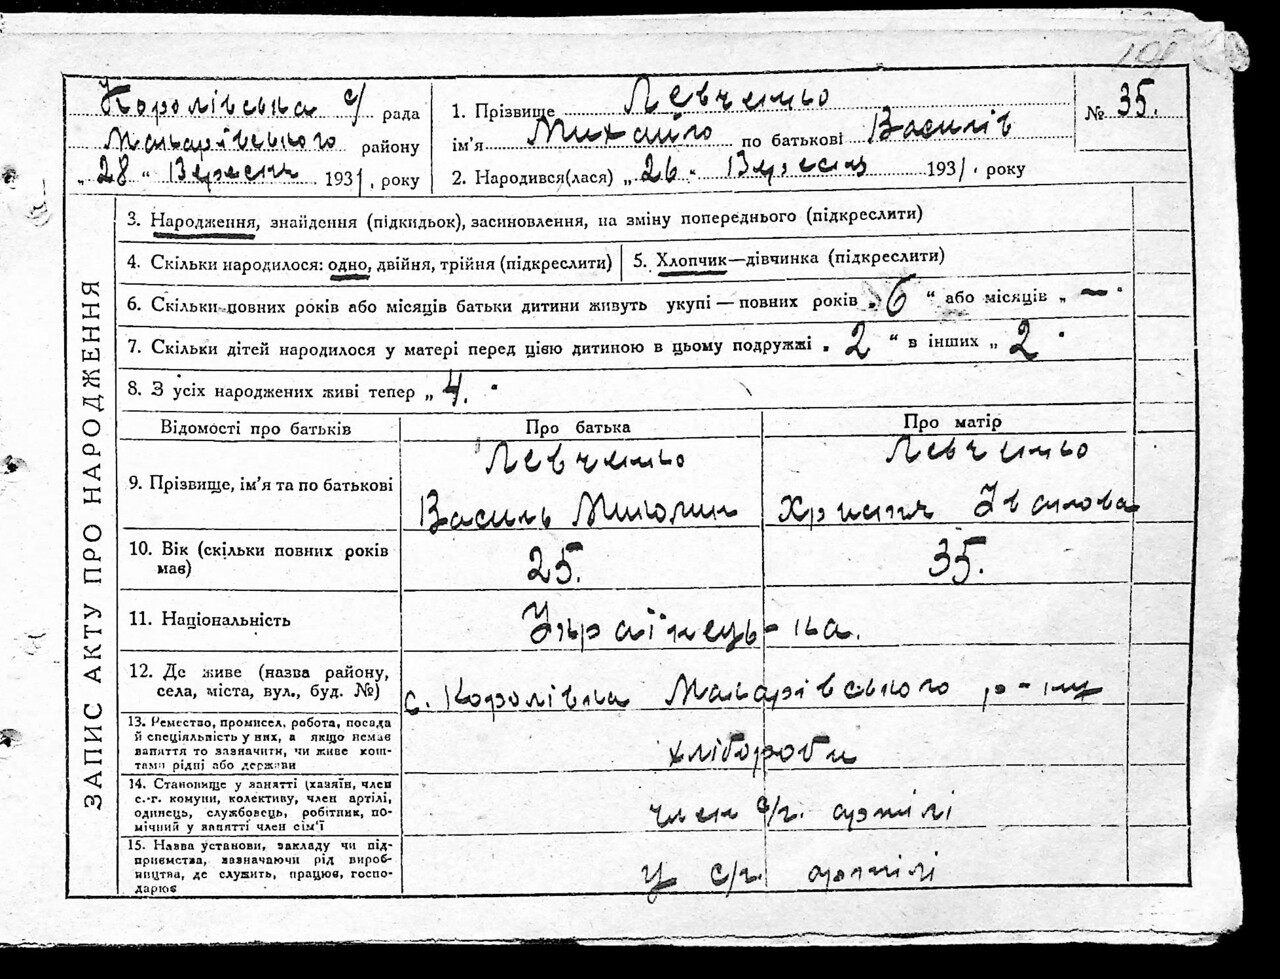 Королівська с/ рада
Макарівського району
„ 28 " Вересня 1931, року
1. Прізвище Левченко
ім'я Михайло по батькові Василів
2. Народився(лася) „ 26 " Вересня 1931, року
№ 35.
ЗАПИС АКТУ ПРО НАРОДЖЕННЯ
3. Народження, знайдення (підкидьок), засиновлення, на зміну попереднього (підкреслити)
4. Скільки народилося: одно, двійня, трійня (підкреслити)
5. Хлопчик—дівчинка (підкреслити)
6. Скільки повних років або місяців батьки дитини живуть укупі — повних років „ 6 " або місяців „ — "
7. Скільки дітей народилося у матері перед цією дитиною в цьому подружжі „ 2 " в інших „ 2 "
8. З усіх народжених живі тепер „ 4. "
Відомості про батьків Про батька Про матір
9. Прізвище, ім'я та по батькові
Левченко
Василь Миколин
Левченко
Христя Іванова
10. Вік (скільки повних років
має)
25. 35.
11. Національність Українець-ка.
12. Де живе (назва району,
села, міста, вул., буд. №)
с. Королівка Макарівського р-ну
13. Ремество, промисел, робота, посада
й спеціяльність у них, а якщо немає
заняття то зазначити, чи живе кош-
тами рідні або держави
хлібороби
14. Становище у занятті (хазяїн, член
с.-г. комуни, колективу, член артілі,
одинець, службовець, робітник, по-
мічний у занятті член сім'ї
член с/г. артілі
15. Назва установи, закладу чи під-
приємства, зазначаючи рід вироб-
ництва, де служить, працює, госпо-
дарює
у с/г. артілі